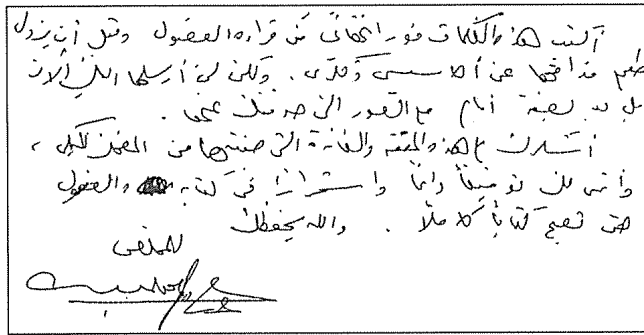 أكتب هذه الكلمات فور انتهائي من قراءة الفصول وقبل أن يزول
طعم مذاقها عن أحاسيسي . ولكن لن أرسلها إليك الآن
بل بعد بضعة أيام مع الصور التي حدثتك عنها .
أشكرك على هذه المتعة والفائدة التي صنعتها من أجل الكل ،
وأتمنى لك توفيقاً دائماً واستمراراً في كتابة والفصول
حتى تصبح كتاباً كاملاً . والله يحفظك
المخلص